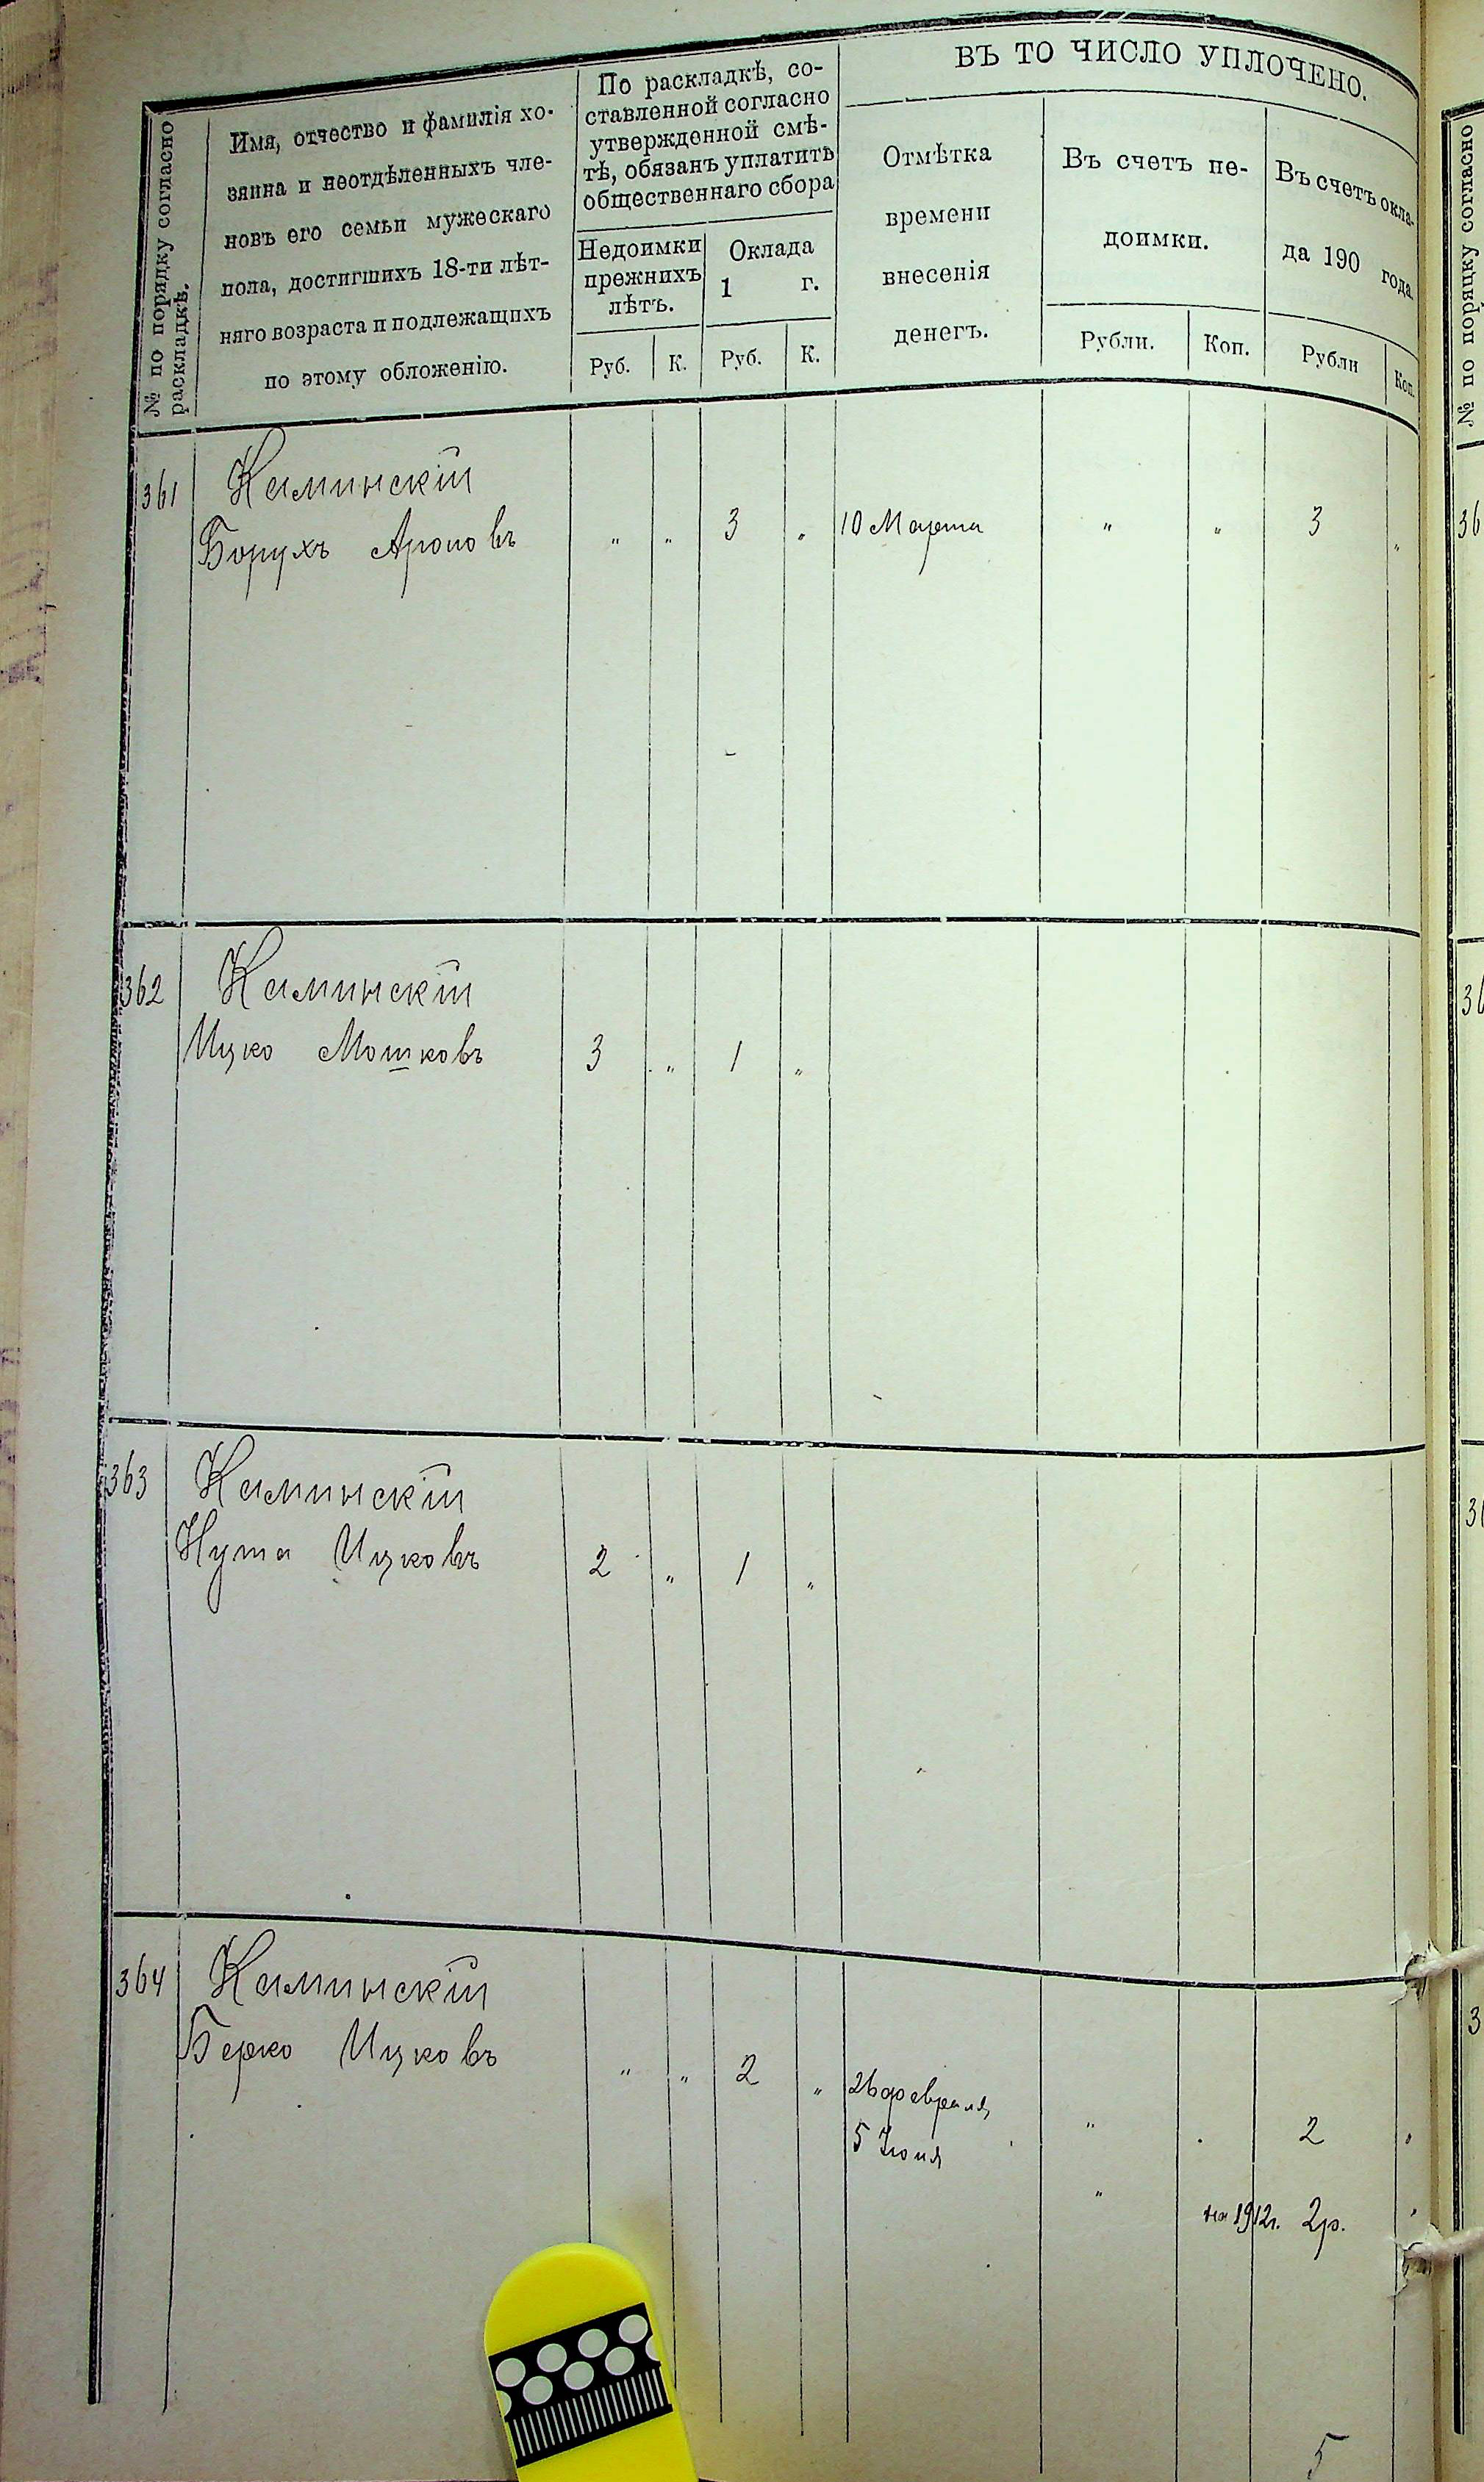 № по порядку согласно
раскладкѣ.
Имя, отчество и фамилія хо-
зяина и неотдѣленныхъ чле-
новъ его семьи мужескаго
пола, достигшихъ 18-ти лѣт-
няго возраста и подлежащихъ
по этому обложенію.
По раскладкѣ, со-
ставленной согласно
утвержденной смѣ-
тѣ, обязанъ уплатить
общественнаго сбора
Недоимки
прежнихъ
лѣтъ.
Оклада
1 г.
Руб. К. Руб. К.
ВЪ ТО ЧИСЛО УПЛОЧЕНО.
Отмѣтка
времени
внесенія
денегъ.
Въ счетъ не-
доимки.
Рубли. Коп.
Въ счетъ окла-
да 190 года.
Рубли Коп.
361 Каминскій
Борухъ Ароновъ " " 3 " 10 Марта " " 3 "
362 Каминскій
Ицко Мошковъ 3 " 1 "
363 Каминскій
Нута Ицковъ 2 " 1 "
364 Каминскій
Берко Ицковъ " " 2 " 26 февраля " . 2 "
5 Іюня " на 1912г. 2р. "
5
№ по порядку согласно
36
36
36
3